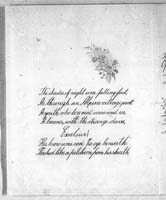 The shades of night were falling fast,
As through an Alpine village past
A youth, who bore mid snow and ice
A banner, with the strange device,
Excelsior!
His brow was sad; his eye beneath
Flashed like a falchion from its sheath